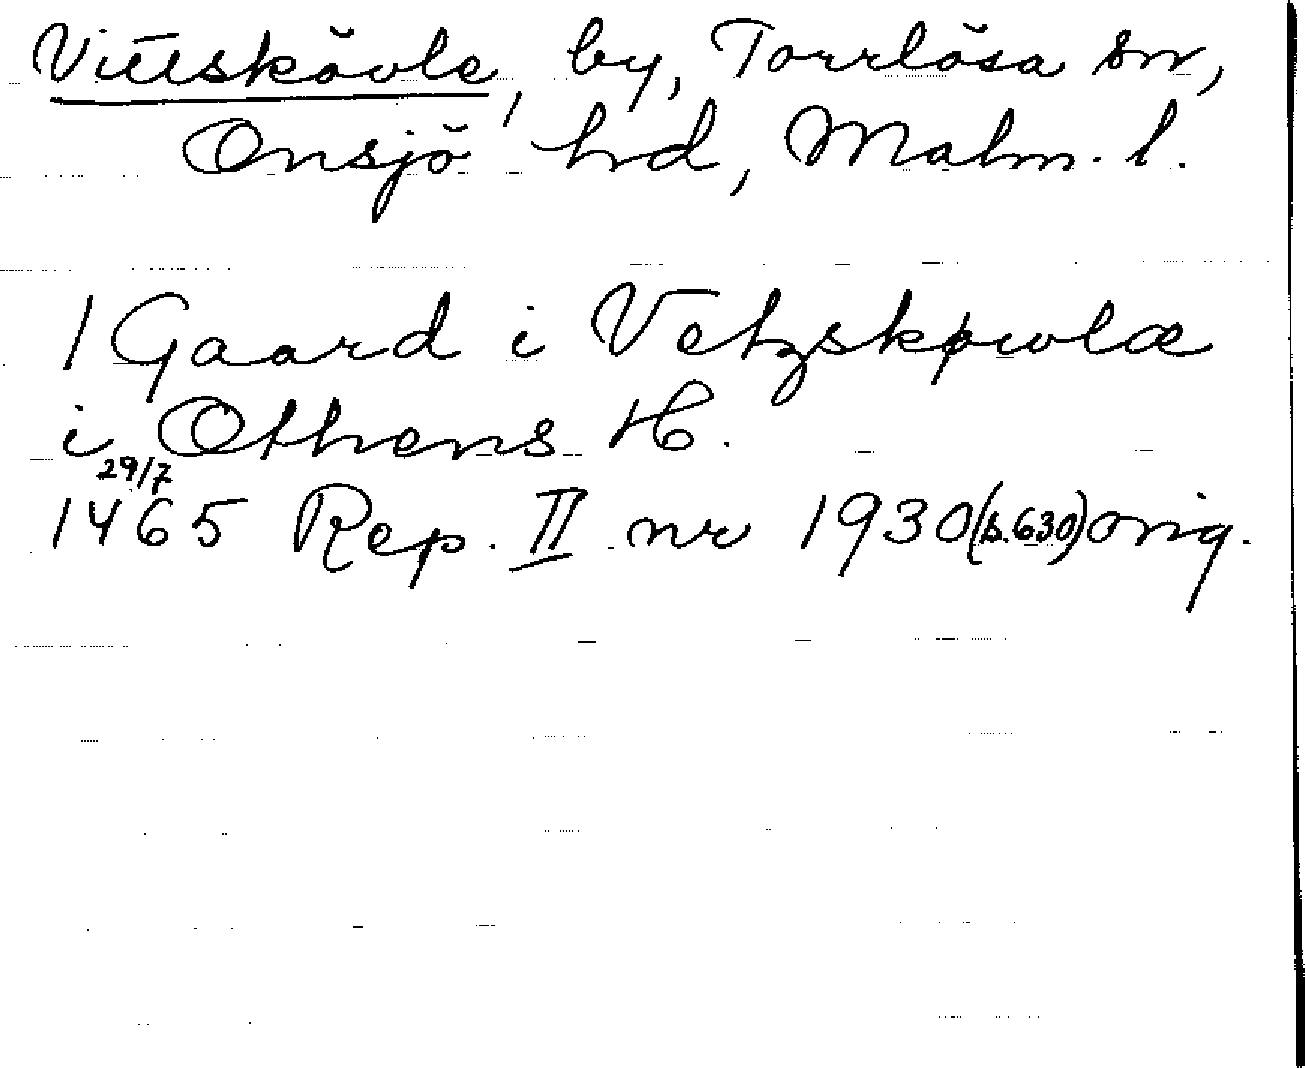 Vittskövle, by, Torrlösa sn,
Onsjö hrd, Malm. l.
1 Gaard i Vetzskøwlæ
i Othens H.
29/7
1465 Rep. II nr 1930 (s.630) orig.